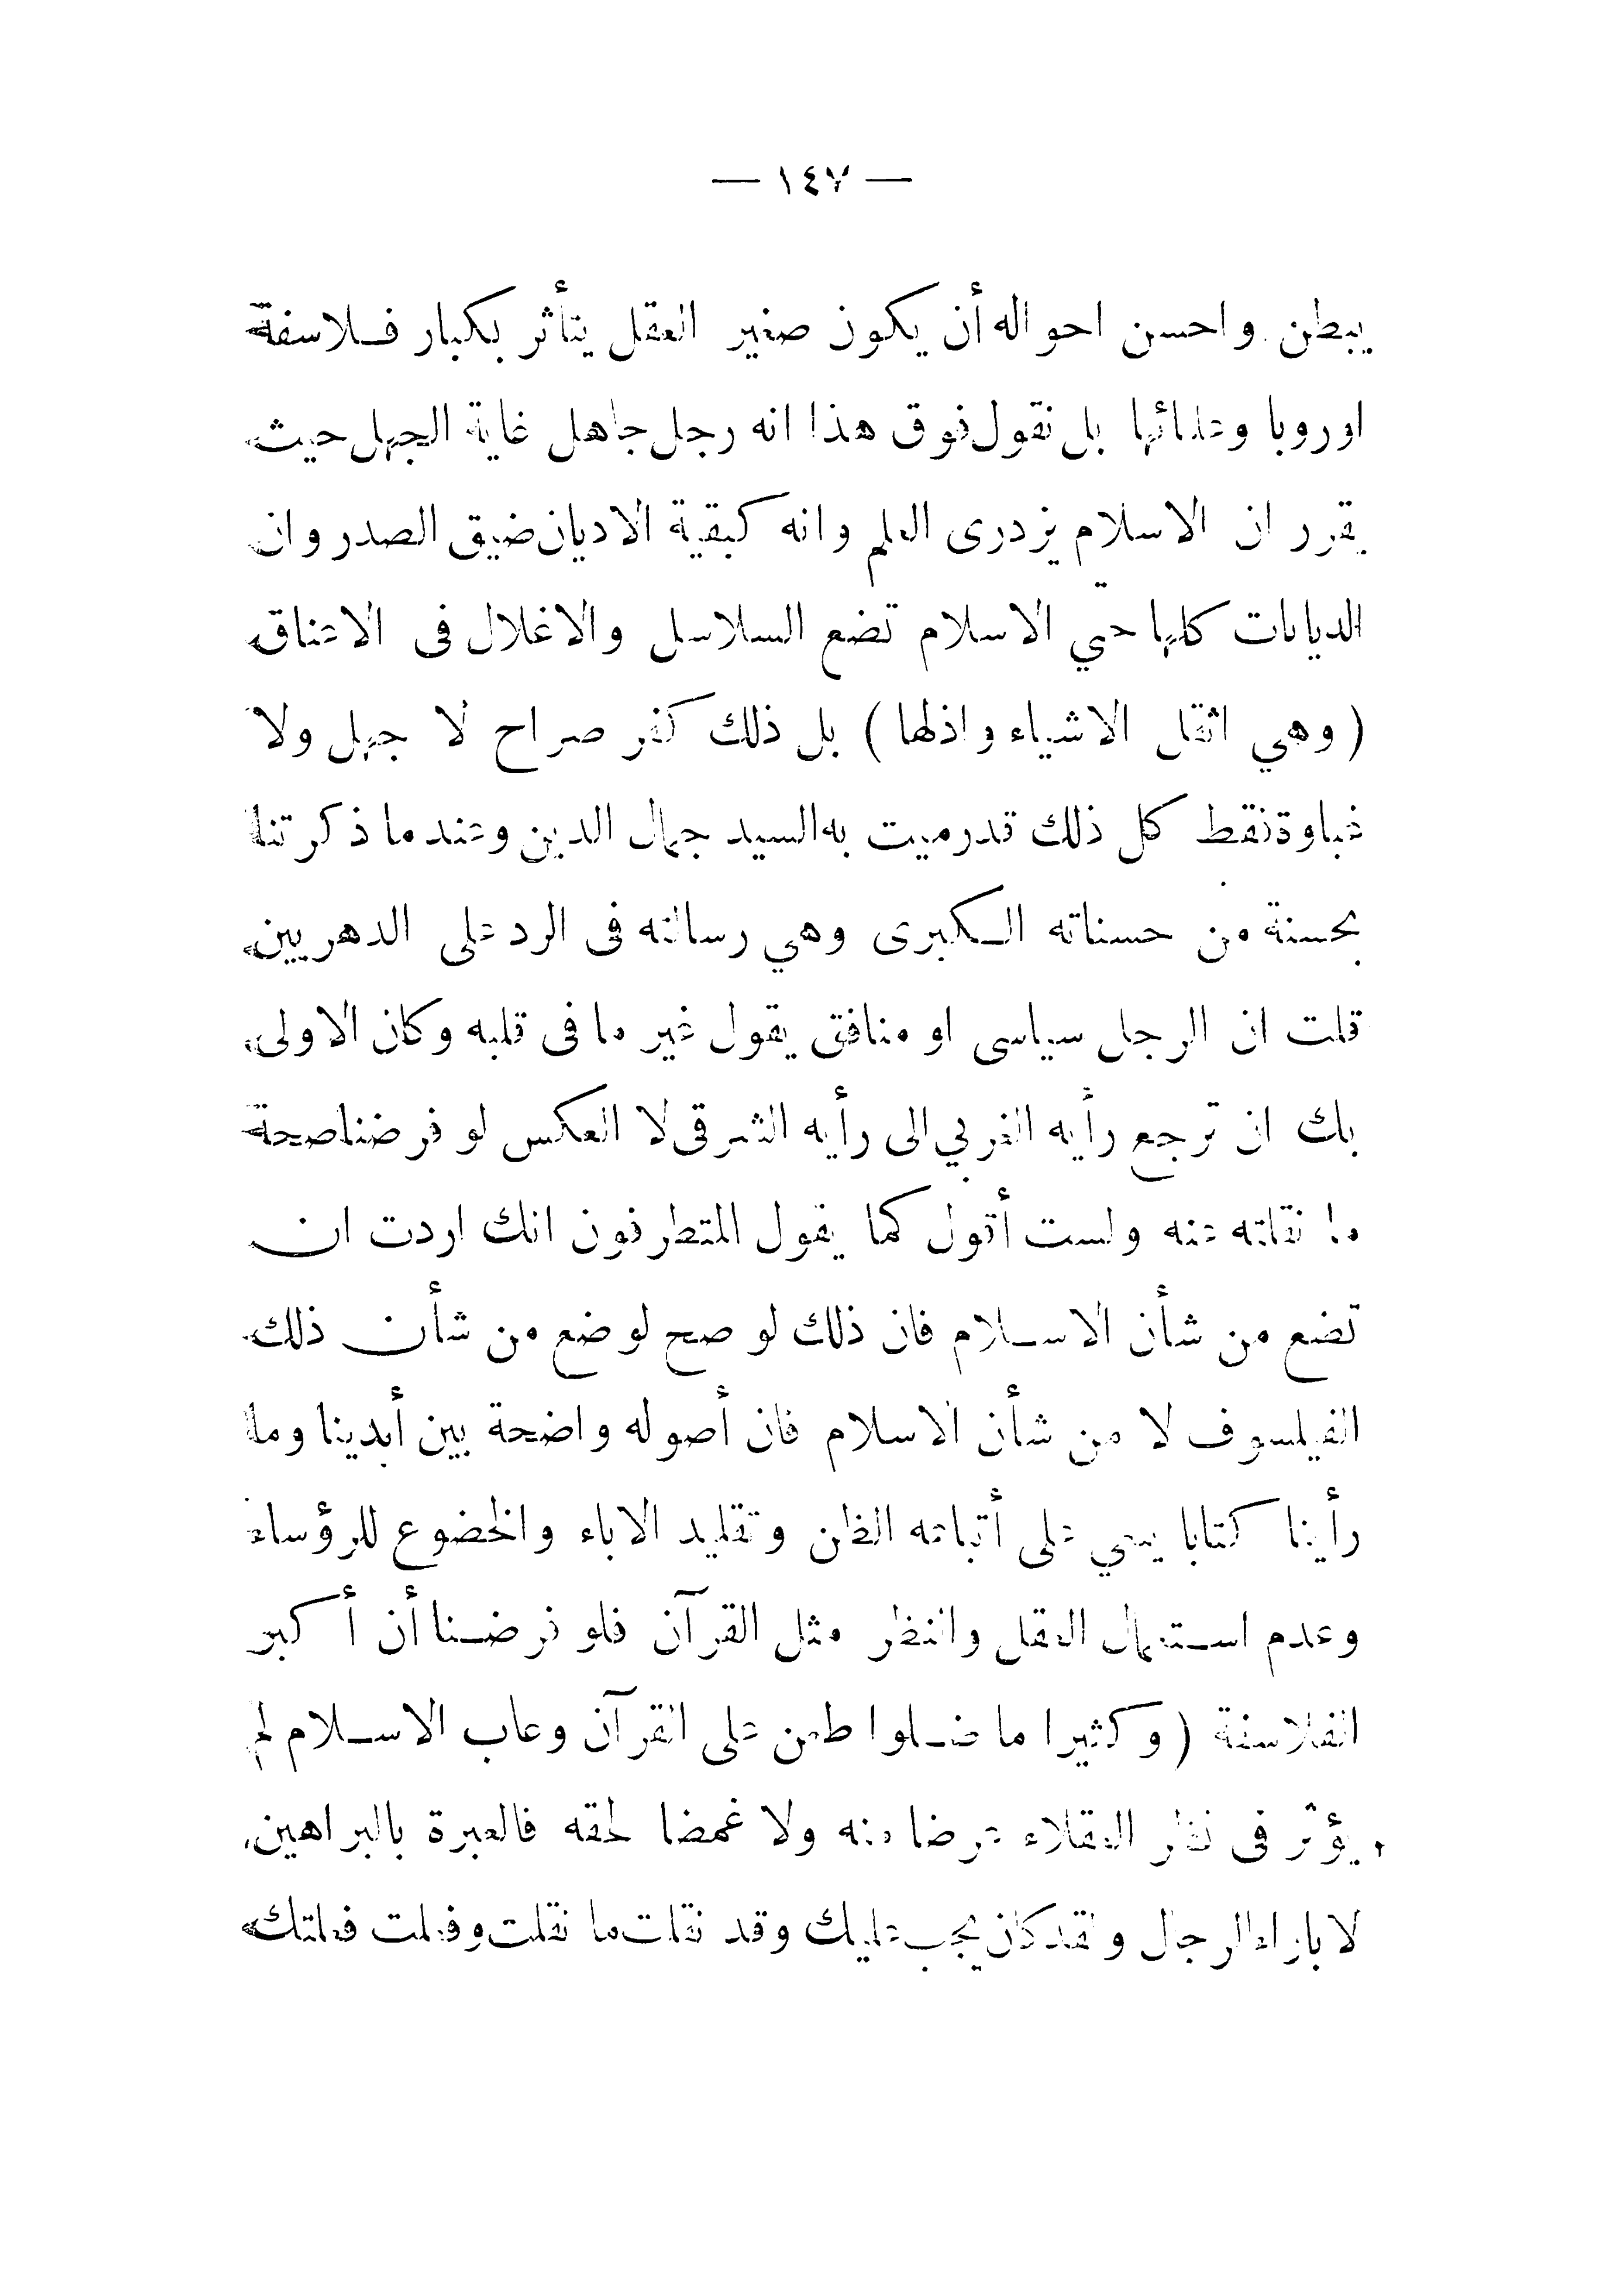 — ١٤٧ —
يبطن واحسن احواله أن يكون صغير العقل يتأثر بكبار فلاسفة
اوروبا وعلمائها بل نقول فوق هذا انه رجل جاهل غاية الجهل حيث
يقرر ان الاسلام يزدرى العلم وانه كبقية الاديان ضيق الصدر وان
الديانات كلها حتي الاسلام تضع السلاسل والاغلال فى الاعناق
( وهي اثقل الاشياء واذلها ) بل ذلك كفر صراح لا جهل ولا
غباوة فقط كل ذلك قد رميت به السيد جمال الدين وعند ما ذكرتنا
بحسنة من حسناته الكبرى وهي رسالته فى الرد على الدهريين
قلت ان الرجل سياسى او منافق يقول غير ما فى قلبه وكان الاولى
بك ان ترجع رأيه الغربي الى رأيه الشرقى لا العكس لو فرضنا صحة
ما نقلته عنه ولست أقول كما يقول المتطرفون انك اردت ان
تضع من شأن الاسلام فان ذلك لو صح لوضع من شأن ذلك
الفيلسوف لا من شأن الاسلام فان أصوله واضحة بين أيدينا وما
رأينا كتابا ينعي على أتباته الظن وتقليد الاباء والخضوع للرؤساء
وعدم استعمال العقل والنظر مثل القرآن فلو فرضنا أن أكبر
الفلاسفة ( وكثيرا ما ضلوا طعن على القرآن وعاب الاسلام لم
يؤثر فى نظر العقلاء عرضا منه ولا غمضا لحقه فالعبرة بالبراهين
لا باراء الرجال ولقد كان يجب عليك وقد نقلت ما نقلت وفعلت فعلتك